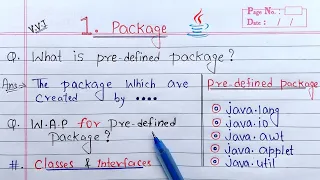 V.V.I
1. Package
Page No.
Date : / /
Q. What is pre-defined package?
Ans→ The package which are
created by ••••
Q. W.A.P for pre-defined
Package?
#. Classes & Interfaces
Pre-defined package
java.lang
java.io
java.awt
java.applet
java.util